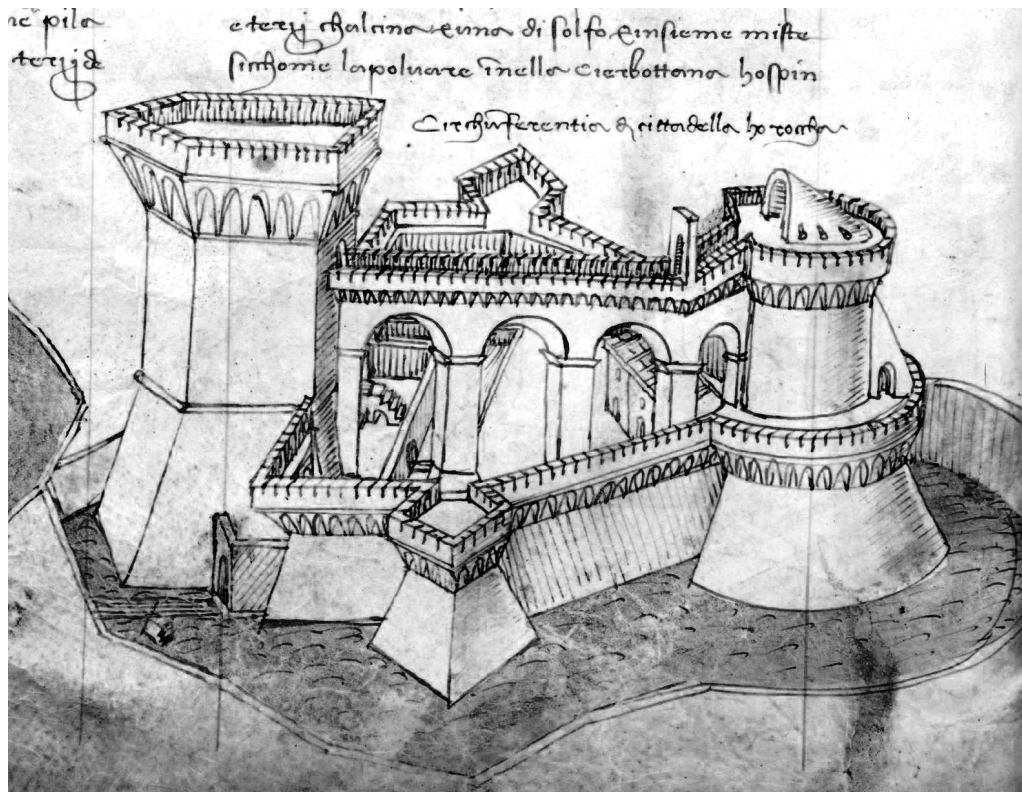 ne pila
terij de
e terij chalcina e una di solfo e insieme miste
sicchome la polvare innella cierbottana ho spin
Circhunferentia di cittadella ho roccha